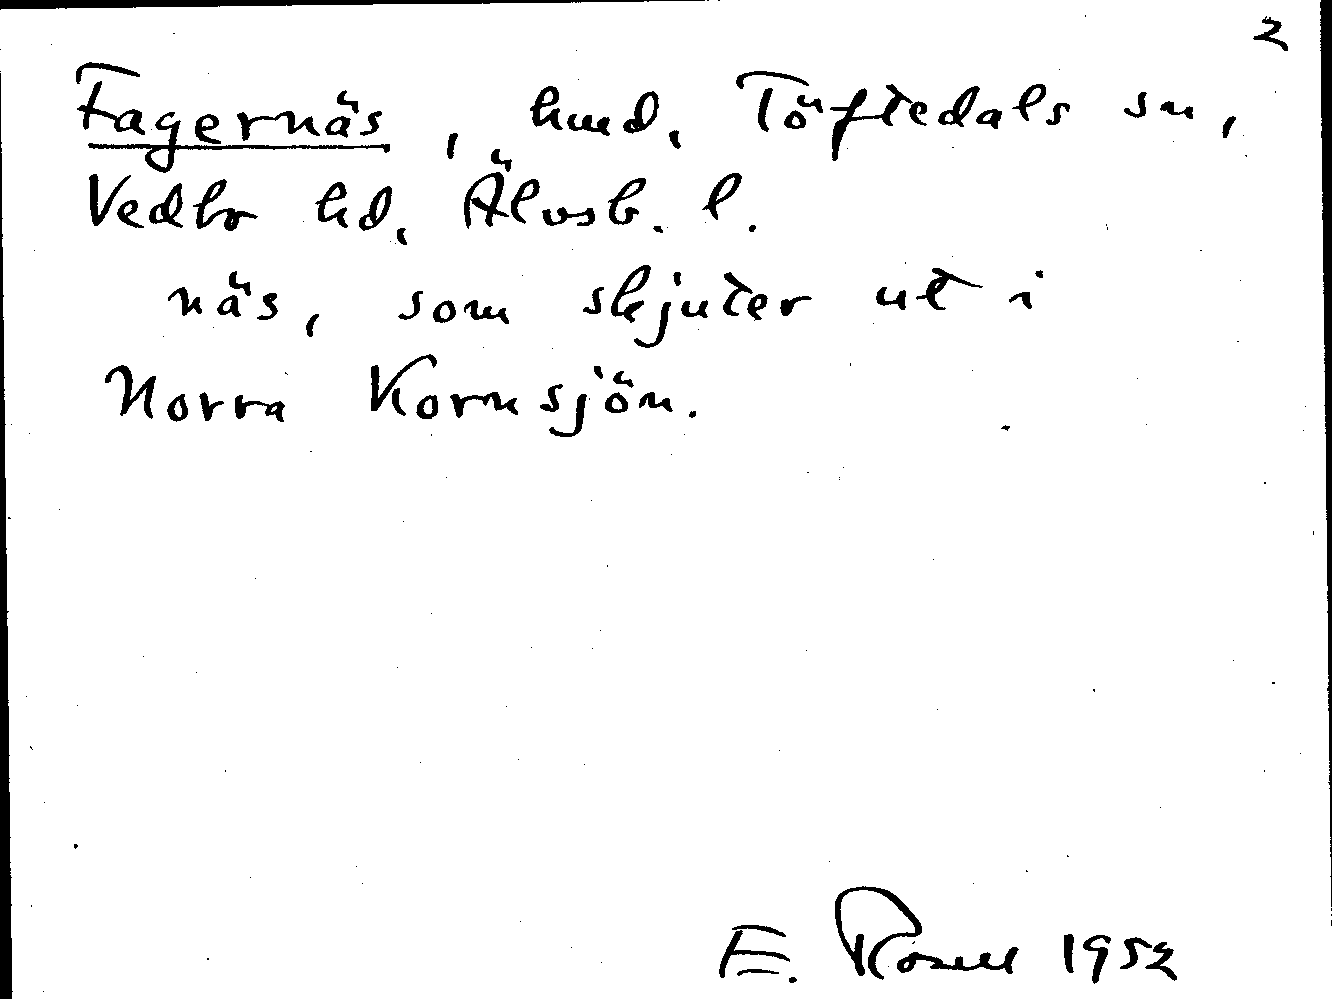 2
Fagernäs, hmd, Töftedals sn,
Vedbo hd, Älvsb. l.
näs, som skjuter ut i
Norra Kornsjön.
E. Rosell 1952